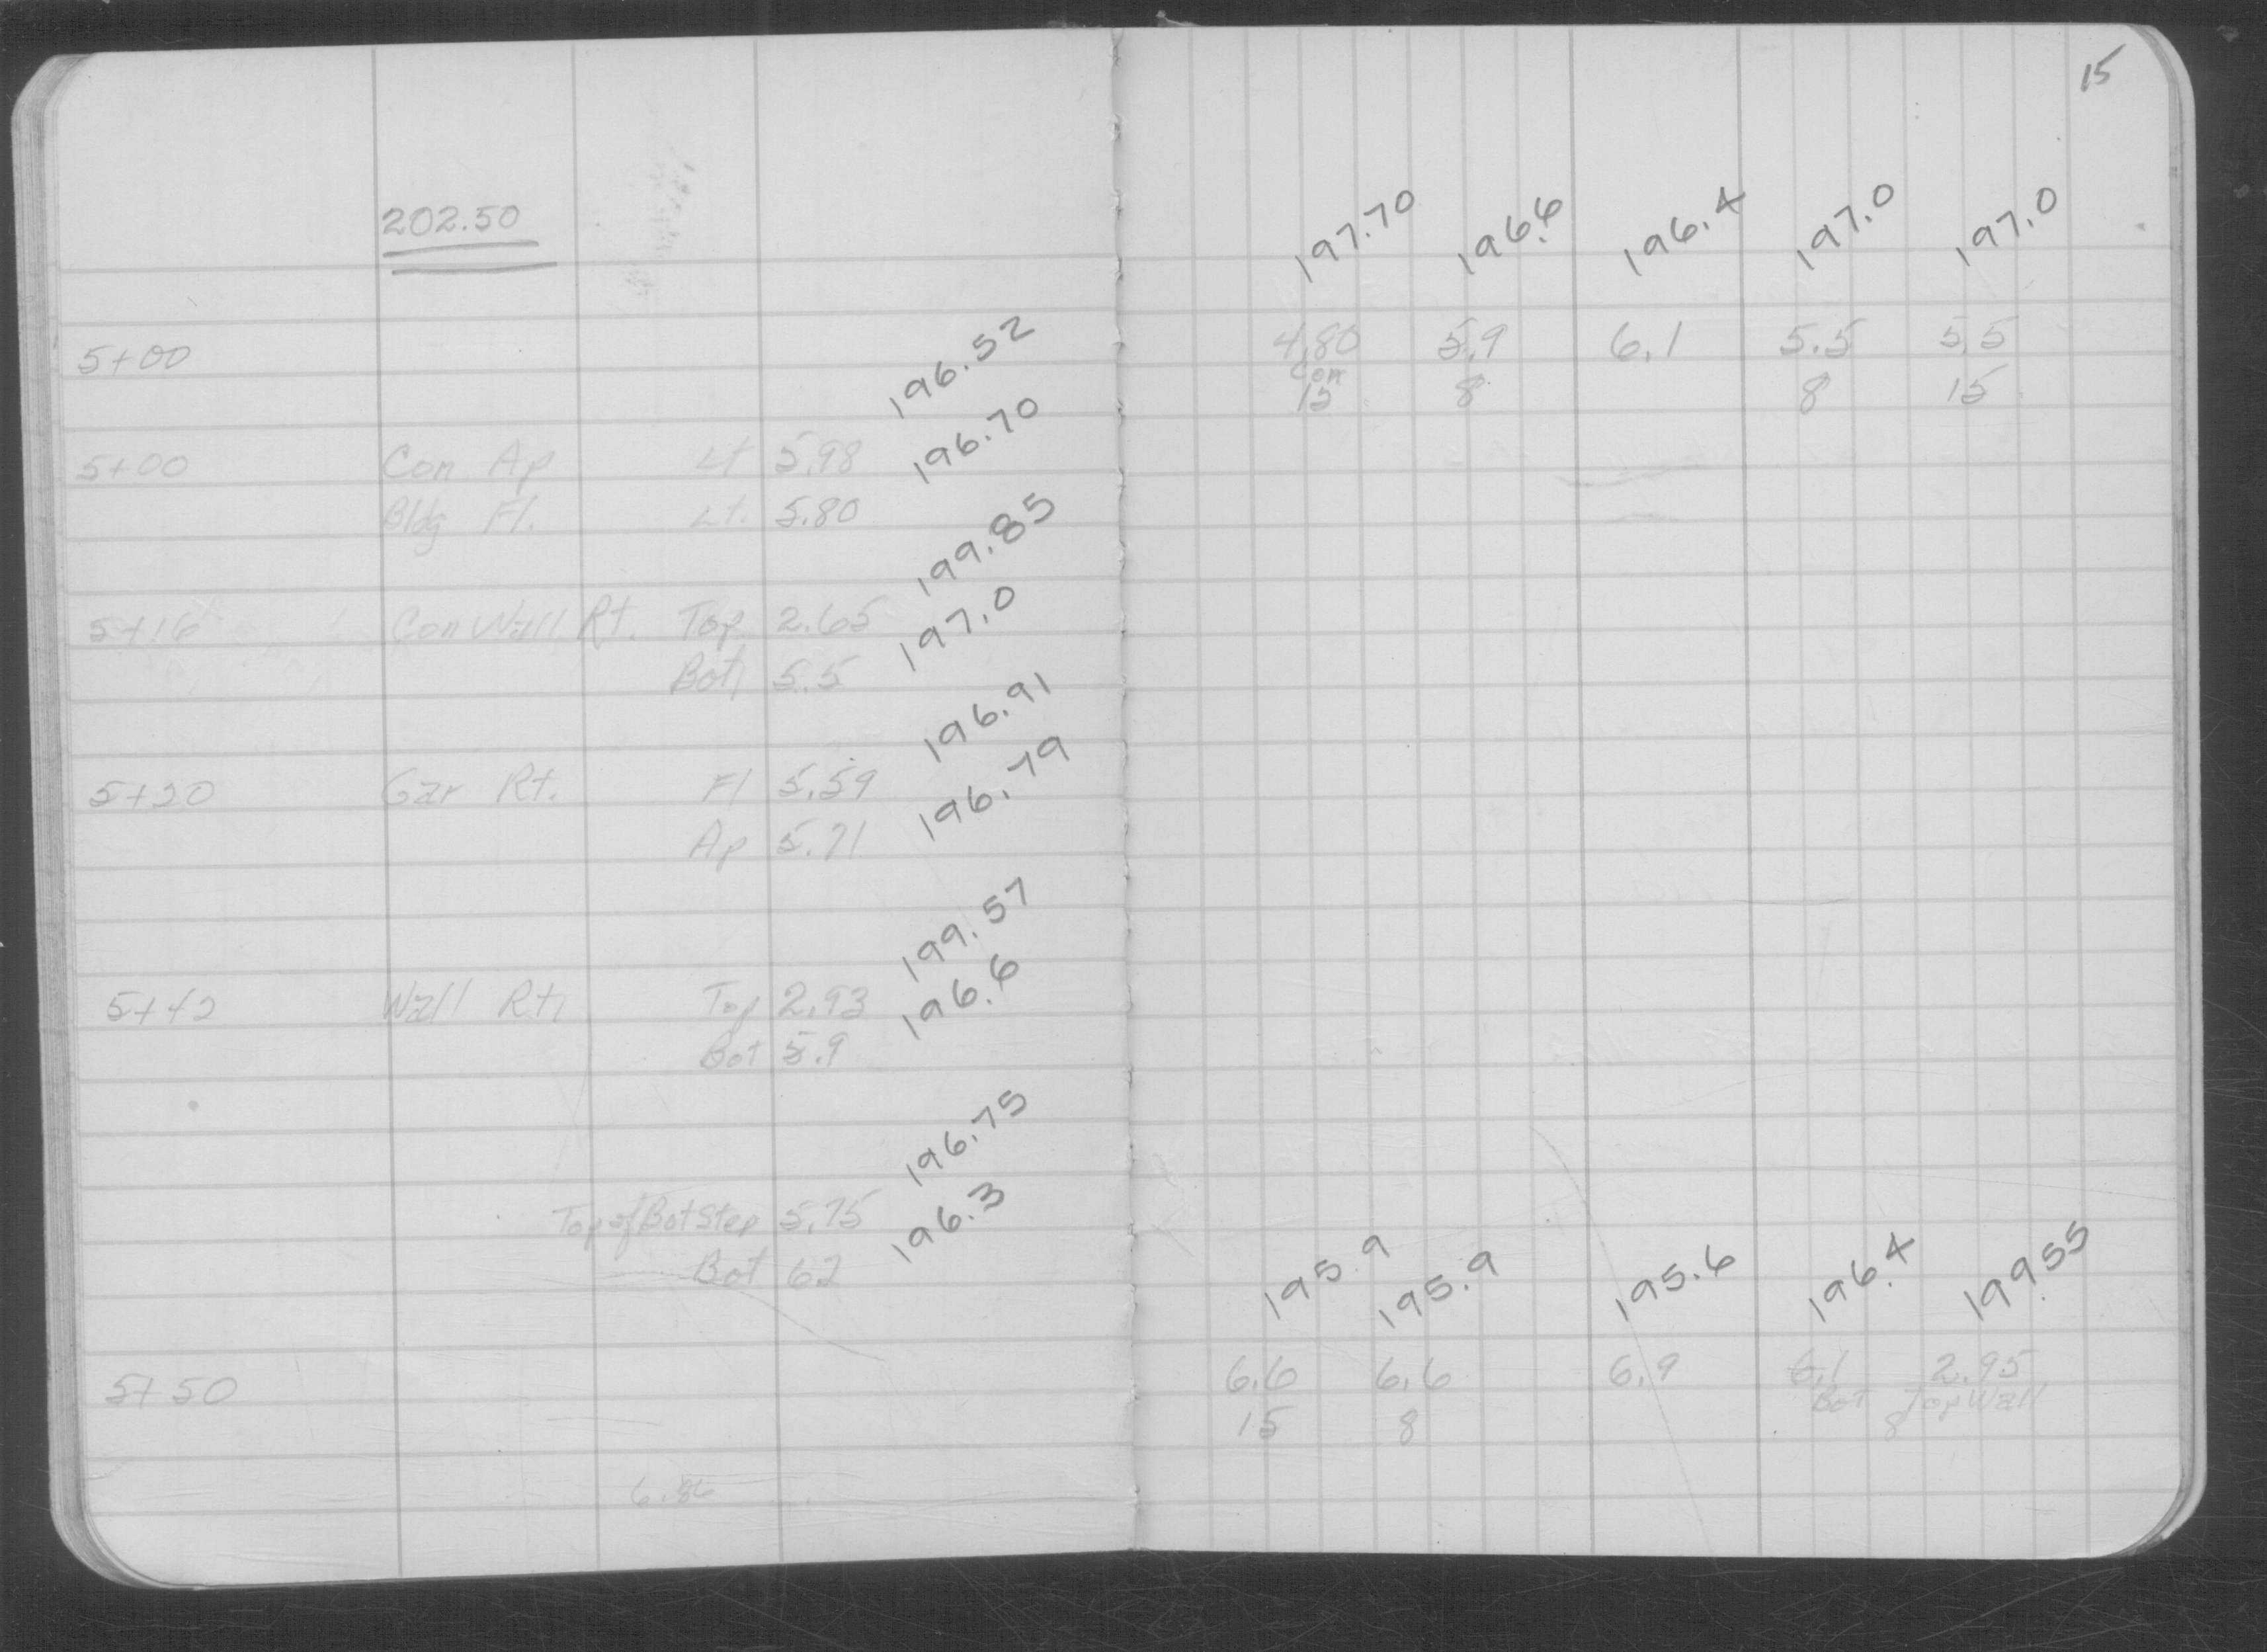 15
202.50
197.70 196.6 196.4 197.0 197.0
5+00 4.80 5.9 6.1 5.5 5.5
Con
15 8 8 15
196.52
5+00 Con Ap Lt 5.98
196.70
Bldg Fl. Lt. 5.80
199.85
5+16 Con Wall Rt. Top 2.65
197.0
Bot 5.5
196.91
5+20 Gar Rt. Fl 5.59
196.79
Ap 5.71
199.57
5+42 Wall Rt. Top 2.93
196.6
Bot 5.9
196.75
Top of Bot Step 5.75
196.3
Bot 6.2
195.9 195.9 195.6 196.4 199.55
5+50 6.6 6.6 6.9 6.1 2.95
Bot Top Wall
15 8 8
6.86